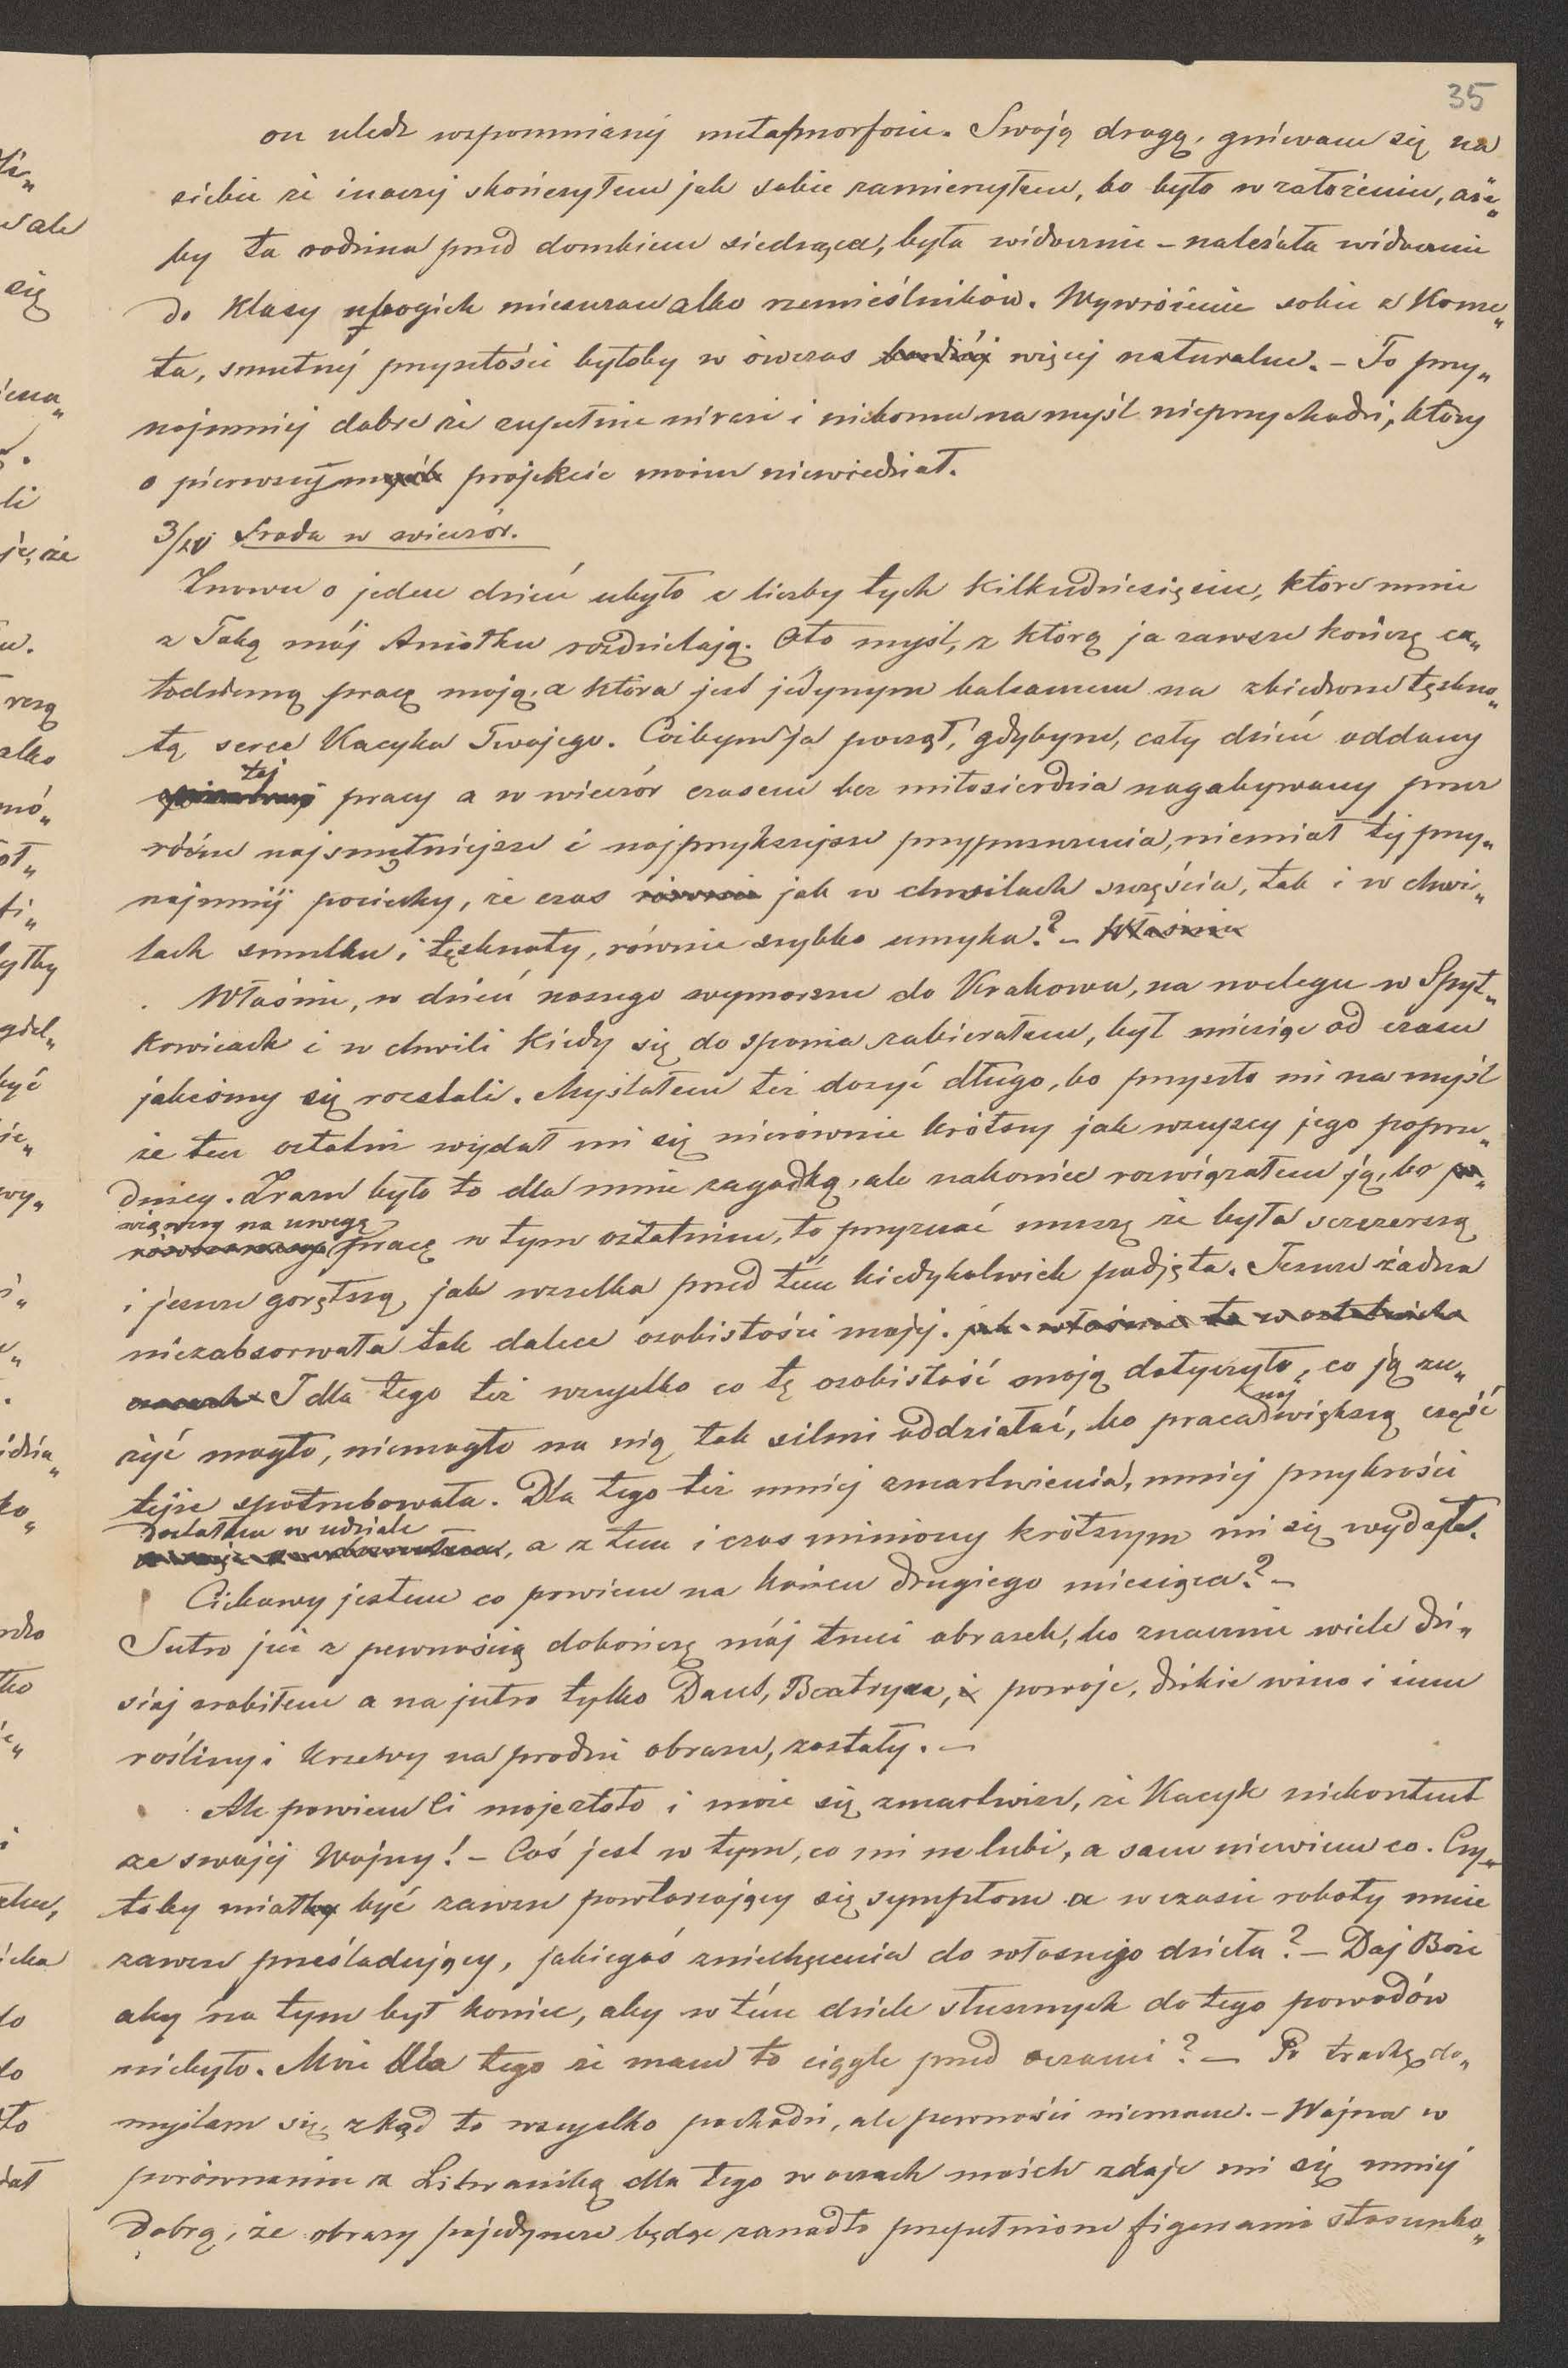 35
on uledz wspomnianéj metapmorfozie. Swoją drogą, gniewam się na
siebie że inaczéj skończyłem jak sobie zamierzyłem, bo było w założeniu, aże„
by ta rodzina przed domkiem siedząca, była widocznie – należała widocznie
do Klasy ubogich mieszczan albo rzemieślników. Wywróżenie sobie z Kome„
ta, smutnéj przyszłości byłoby w ówczas bardziéj więcej naturalne. – To przy„
najmniéj dobre że zupełnie nierazi i nikomu na myśl nieprzychodzi, który
o pierwszym myśli projekcie moim niewiedział.
3/IV Środa w wieczór.
Znowu o jeden dzień ubyło z liczby tych Kilkudziesięciu, które mnie
z Tobą mój Aniołku rozdzielają. Oto myśl, z którą ja zawsze kończę ca„
łodzienną pracę moją, a która jest jedynym balsamem na zbiedzone tęskno„
tą serce Kacyka Twojego. Cóżbym ja począł, gdybym, cały dzień oddany
téj
pracy a w wieczór czasem bez miłosierdzia nagabywany przez
różne najsmutniejsze i najprzykrzejsze przypuszczenia, niemiał téj przy„
najmniéj pociechy, że czas równie jak w chwilach szczęścia, tak i w chwi„
lach smutku i tęsknoty, równie szybko umyka? – Właśnie
Właśnie, w dzień naszego wymarszu do Krakowa, na noclegu w Spyt„
kowicach i w chwili Kiedy się do spania zabierałem, był miesiąc od czasu
jakeśmy się rozstali. Myślałem też dosyć długo, bo przyszło mi na myśl
że ten ostatni wydał mi się nierównie krótszy jak wszyscy jego poprze„
dnicy. Zrazu było to dla mnie zagadką, ale nakoniec rozwiązałem ją, bo
wziąwszy na uwagę
pracę w tym ostatnim, to przyznać muszę że była szczerszą
i jeszcze gorętszą jak wszelka przed tém kiedykolwiek podjęta. Jeszcze żadna
niezabsorwała tak dalece osobistości mojéj. jak właśnie ta w ostatnich
czasach I dla tego też wszystko co tę osobistość moją dotyczyło, co ją zu„
żyć mogło, niemogło na nią tak silnie oddziałać, bo praca
naj
większą część
tejże spotrzebowała. Dla tego też mniéj zmartwienia, mniéj przykrości
dostałem w udziale
, a z tem i czas miniony krótszym mi się wydał.
Ciekawy jestem co powiem na końcu drugiego miesiąca? –
Jutro już z pewnością dokończę mój trzeci obrazek, bo znacznie wiele dzi„
siaj zrobiłem a na jutro tylko Dant, Beatryxa, i powoje, dzikie wino i inne
rośliny i krzewy na przodzie obrazu, zostały. –
Ale powiem Ci moje złoto i może się zmartwisz, że Kacyk niekontent
ze swojéj Wojny! – Coś jest w tym, co mi nie lubi, a sam niewiem co. Czy„
toby miałby być zawsze powtarzający się symptom a w czasie roboty mnie
zawsze prześladujący, jakiegoś zniechęcenia do własnego dzieła? – Daj Boże
aby na tym był koniec, aby w tém dziele słusznych do tego powodów
niebyło. Może dla tego że mam to ciągle przed oczami? – Po trochę do„
myślam się zkąd to wszystko pochodzi, ale pewności niemam. – Wojna w
porównaniu z Lituanią dla tego w oczach moich zdaje mi się mniéj
dobrą, że obrazy pojedyncze będąc zanadto przepełnione figurami stosunko„